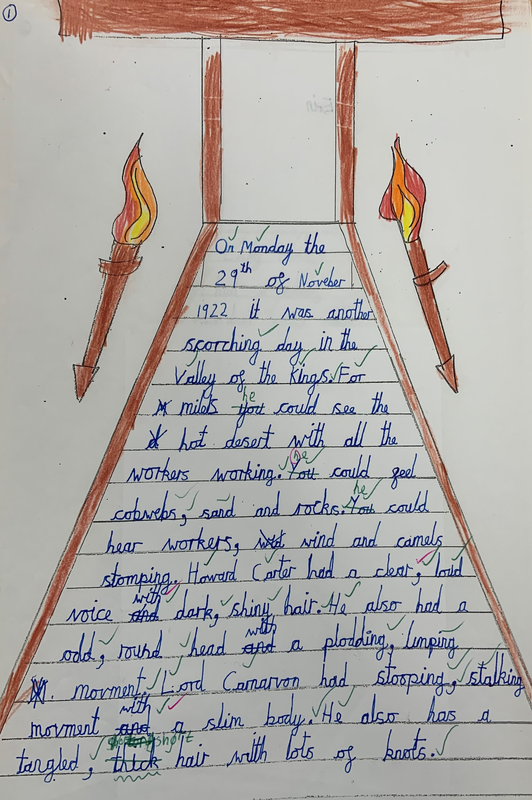 1
On Monday the
29th of Noveber
1922 it was another
scorching day in the
Valley of the Kings. For
milels he you could see the
hot desert with all the
workers working. he You could feel
cobwebs, sand and rocks. he You could
hear workers, wind and camels
stomping. Howard Carter had a clear, loud
voice with and dark, shiny hair. He also had a
odd, round head with and a plodding, limping
movment. Lord Carnarvon had stooping, stalking
movment with and a slim body. He also has a
tangled, short thick hair with lots of knots.